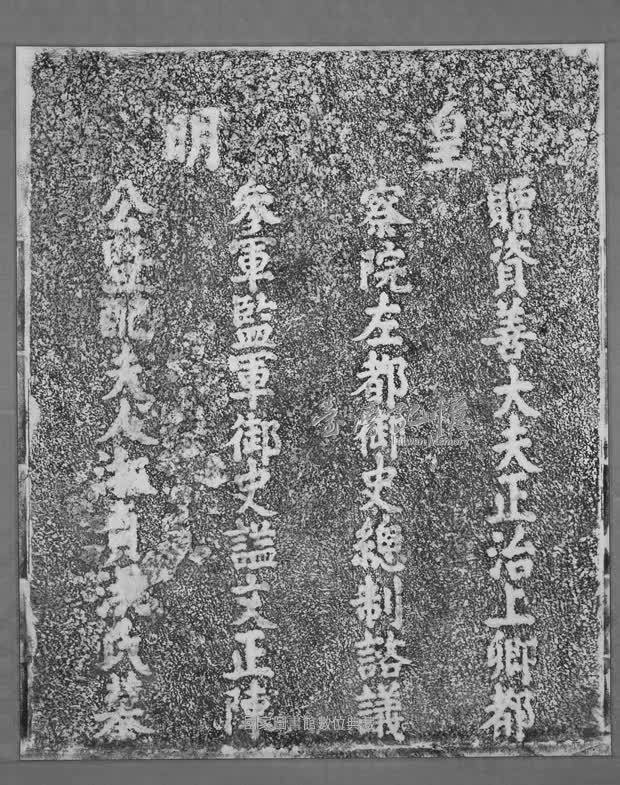 皇明
贈資善大夫正治上卿都
察院左都御史總制諮議
參軍監軍御史謚文正陳
公暨配夫人淑貞洪氏墓
Taiwan Memory
國家圖書館數位典藏